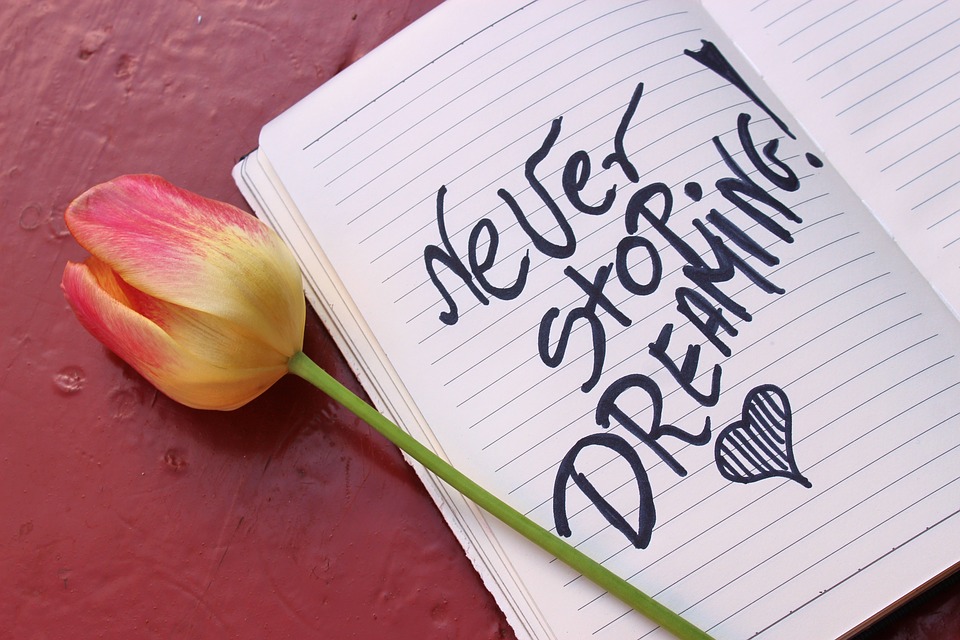 Never
Stop.
DREAMING!